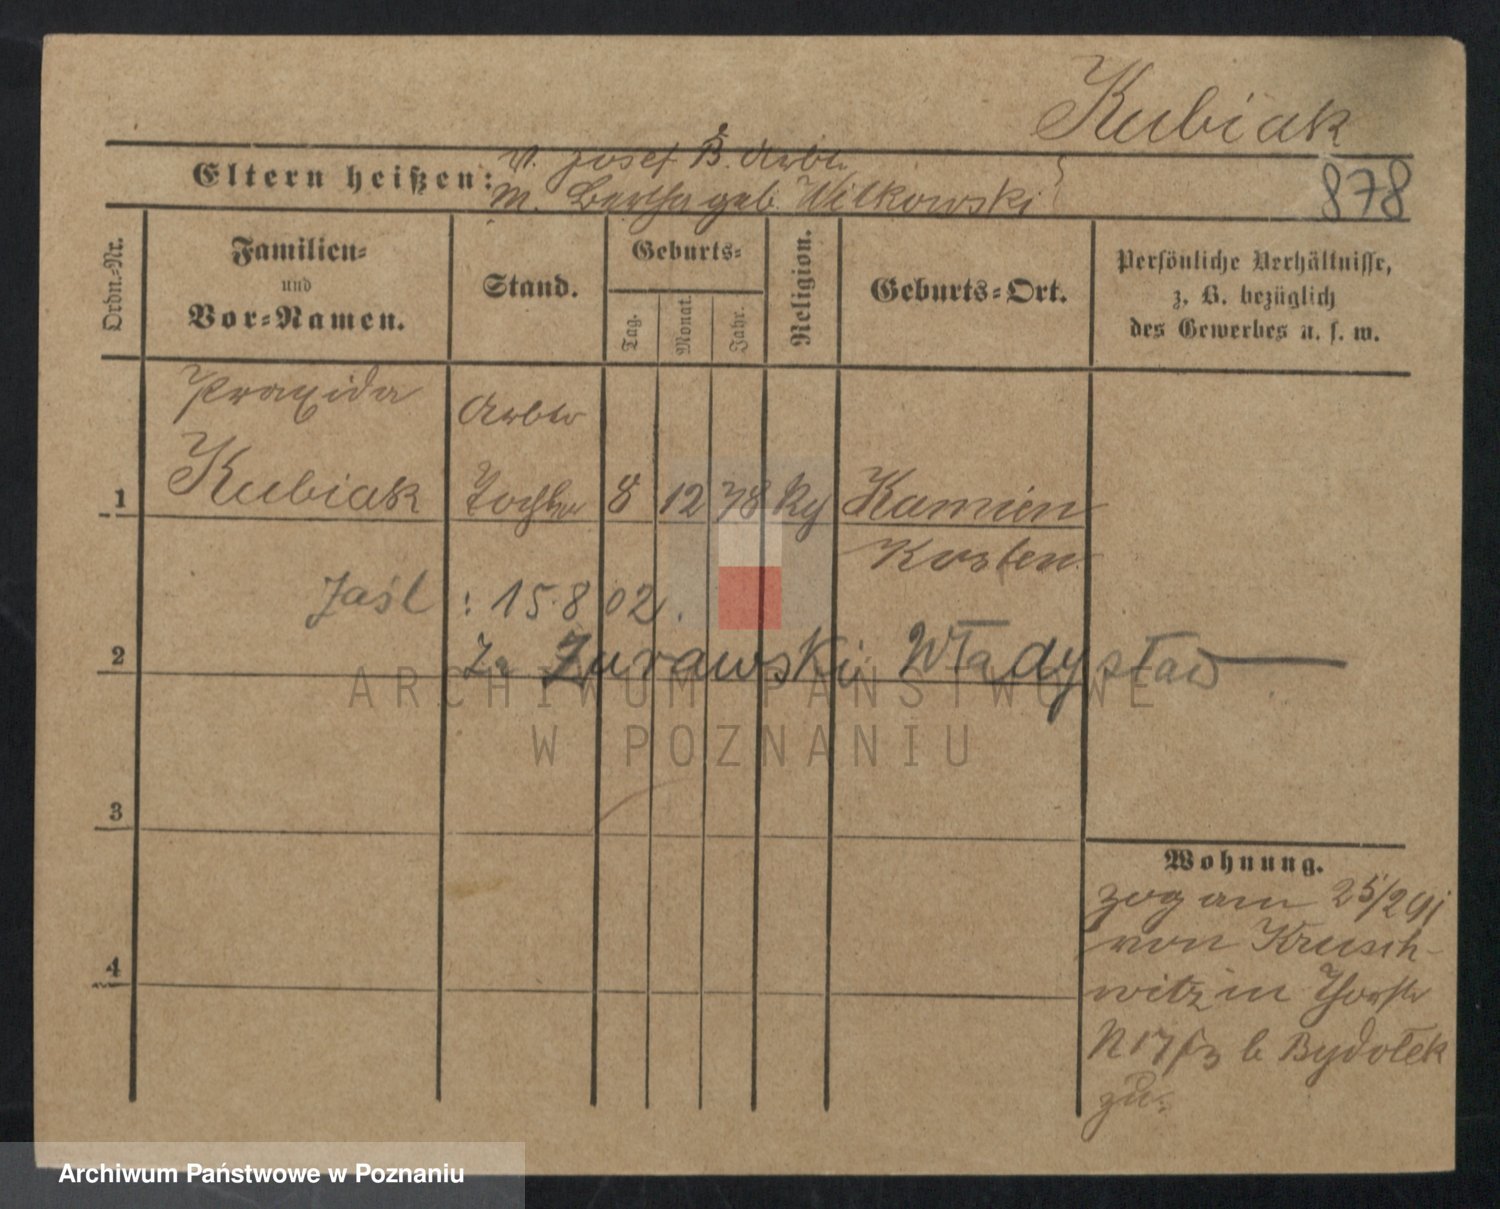 Kubiak
Eltern heißen: V. Josef B. Arbtr
M. Bertha geb. Witkowski
878
Ordn.-Nr.
Familien- und Vor-Namen.
Stand.
Geburts-
Tag.
Monat.
Jahr.
Religion.
Geburts-Ort.
Persönliche Verhältnisse,
z. B. bezüglich
des Gewerbes u. s. w.
Praxida Arbtr
1 Kubiak Tochter 8 12 78 Kamien
Kosten
: 15.8 02.
2 Żurawski Władysław
ARCHIWUM PAŃSTWOWE
W POZNANIU
3
Wohnung.
zog am 25/2 91
von Krusch-
4 witz in Thorstr
N 17 b Bydołek
zu.
Archiwum Państwowe w Poznaniu